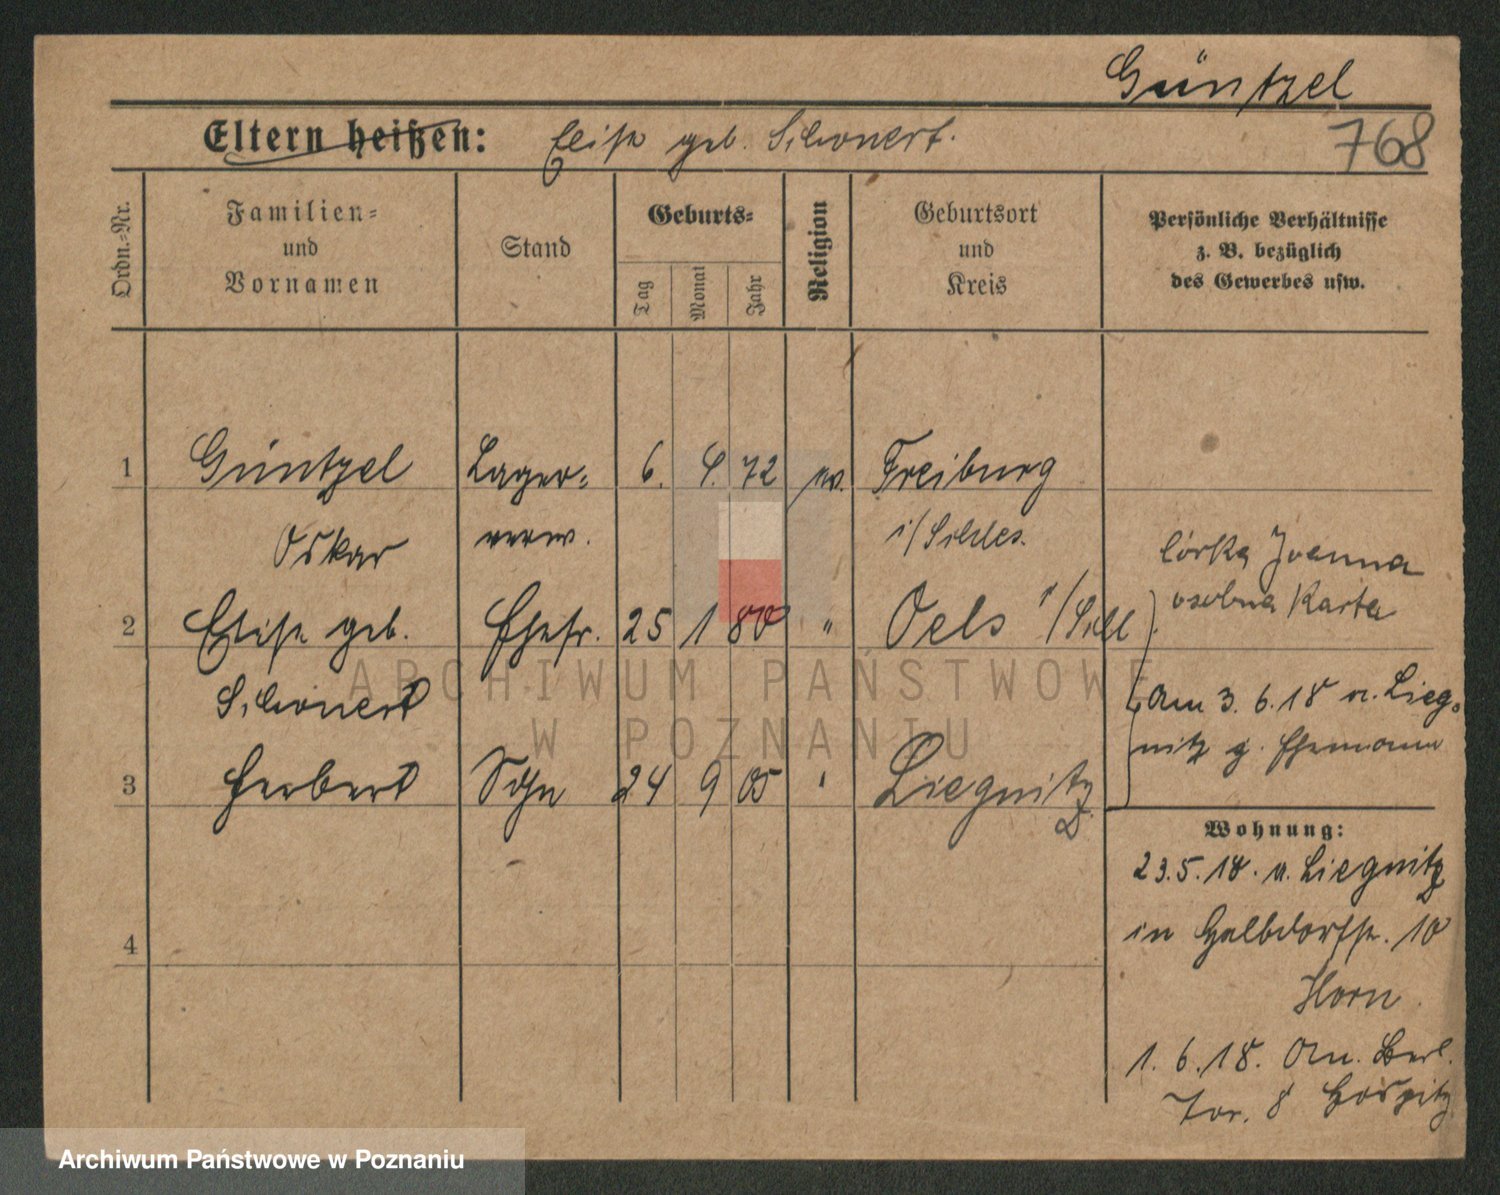 Güntzel
Eltern heißen: Elise geb. Schonert.
768
Ordn.-Nr.
Familien-
und
Vornamen
Stand
Geburts-
Tag
Monat
Jahr
Religion
Geburtsort
und
Kreis
Persönliche Verhältnisse
z. B. bezüglich
des Gewerbes usw.
1 Güntzel Lager- 6. 4. 72 ev. Freiburg
Oskar verw. i/Schles.
córka Joanna
osobna Karta
2 Elise geb. Ehefr. 25 1 80 " Oels i/Schl
Schonert
Am 3. 6. 18 n. Lieg-
nitz z. Ehemann
3 Herbert Sohn 24 9 05 " Liegnitz
Wohnung:
23.5.18. v. Liegnitz
in Halbdorfstr. 10
Horn.
1. 6. 18. Am Berl.
Tor. 8 Hospitz
4
ARCHIWUM PAŃSTWOWE
W POZNANIU
Archiwum Państwowe w Poznaniu